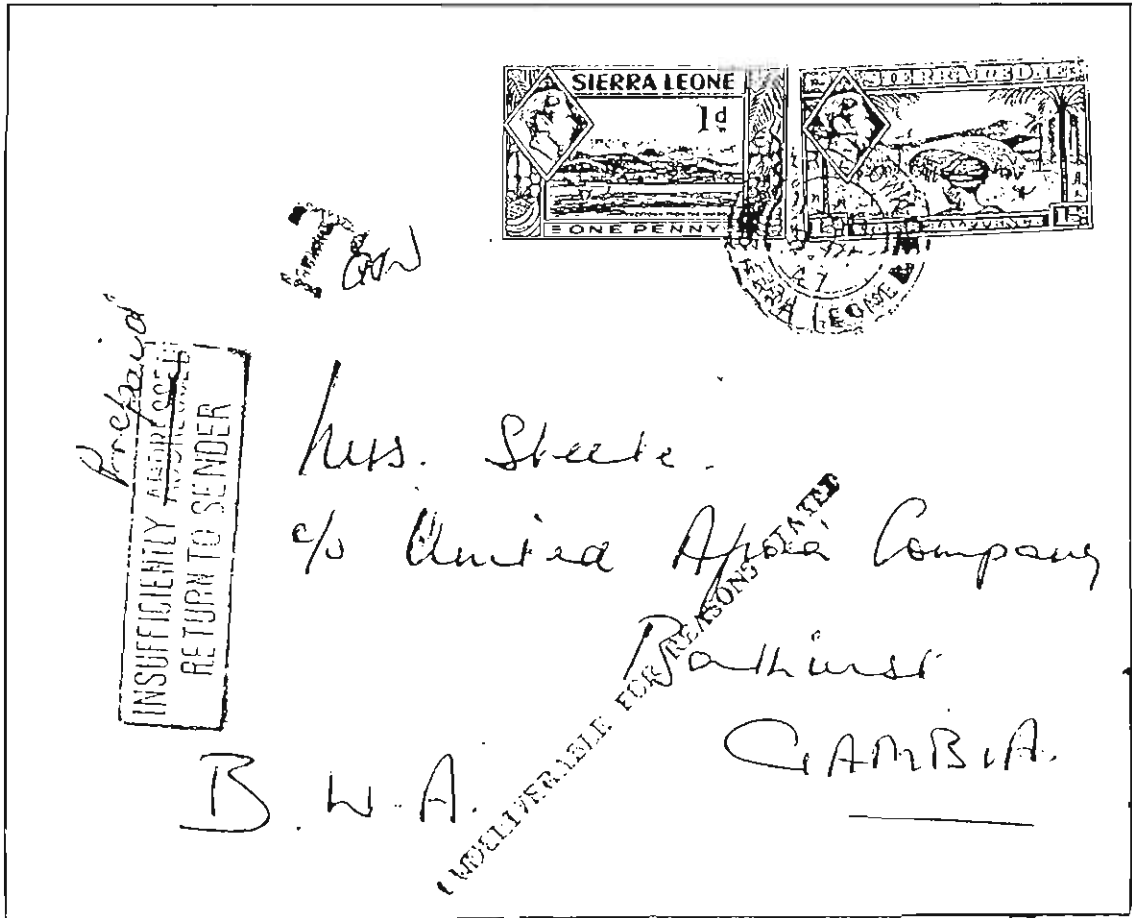 SIERRA LEONE
1d
ONE PENNY
SIERRA LEONE
T
Prepaid
INSUFFICIENTLY ADDRESSED
RETURN TO SENDER
Mrs. Steele.
c/o United Africa Company
Bathurst
GAMBIA.
B.W.A.
UNDELIVERABLE FOR REASONS STATED